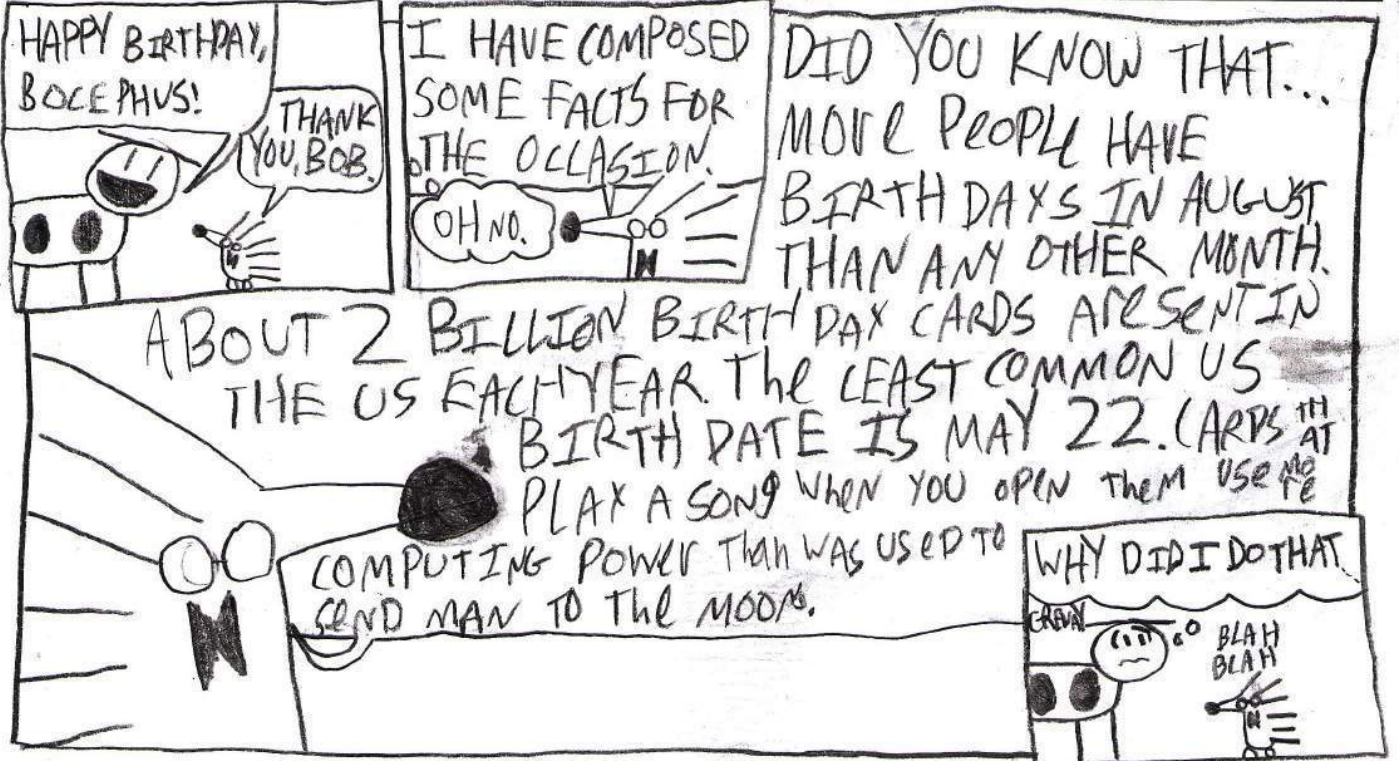 HAPPY BIRTHDAY,
BOCEPHUS!
THANK
YOU, BOB.
I HAVE COMPOSED
SOME FACTS FOR
THE OCCASION.
OH NO.
DID YOU KNOW THAT...
MOre PeOPLe HAVE
BIRTHDAYS IN AUGUST
THAN ANY OTHER MONTH.
ABOUT 2 BILLION BIRTHDAY CARDS AreSeNT IN
THE US EACH YEAR. The LEAST COMMON US
BIRTH DATE IS MAY 22. CARDS THAT
PLAY A SONg WheN YOU OPeN TheM USe MOre
COMPUTING POWer ThaN WAS USeD TO
SeND MAN TO The MOON.
WHY DID I DO THAT
BLAH
BLAH